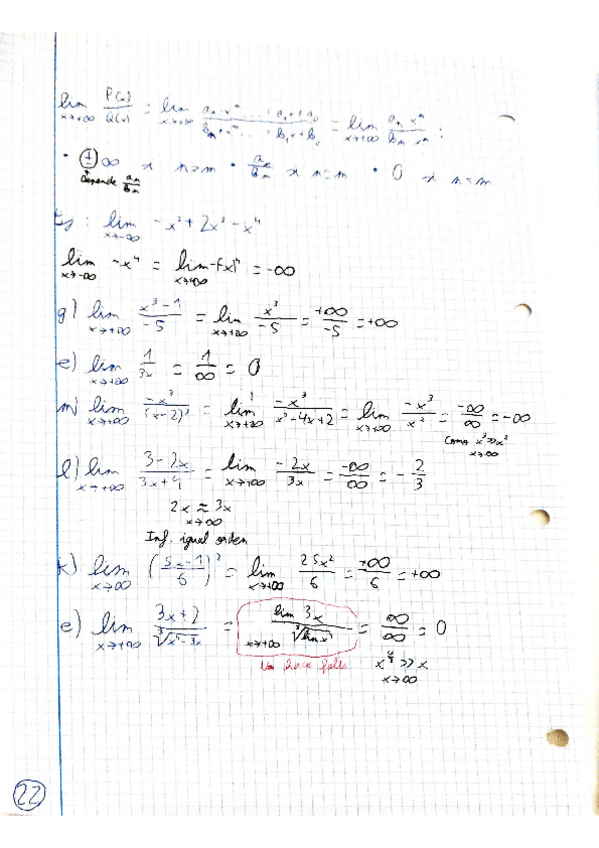 lim x→+∞ P(x)/Q(x) = lim x→+∞ (aₙ·xⁿ ... + a₁x + a₀)/(bₘ·xᵐ ... + b₁x + b₀) = lim x→+∞ (aₙ xⁿ)/(bₘ xᵐ) :
• ±∞ si n>m • aₙ/bₘ si n=m • 0 si n<m
Depende aₙ/bₘ
Ej: lim x→-∞ -x² + 2x³ - x⁴
lim x→-∞ -x⁴ = lim x→+∞ -(-x)⁴ = -∞
g) lim x→+∞ (x³-1)/-5 = lim x→+∞ x³/-5 = +∞/-5 = +∞
e) lim x→+∞ 1/3x = 1/∞ = 0
m) lim x→+∞ -x³/(x-2)² = lim x→+∞ -x³/(x²-4x+2) = lim x→+∞ -x³/x² = -∞/∞ = -∞
Como x³>>x²
x→∞
l) lim x→+∞ (3-2x)/(3x+4) = lim x→+∞ -2x/3x = -∞/∞ = -2/3
2x ≈ 3x
x→∞
Inf. igual orden
k) lim x→∞ ((5x-1)/6)² = lim x→+∞ 25x²/6 = +∞/6 = +∞
e) lim x→+∞ (3x+2)/∛(x⁴-3x) = lim 3x/∛lim x⁴ x→+∞ = ∞/∞ = 0
No hace falta
x^(4/3) >> x
x→∞
22